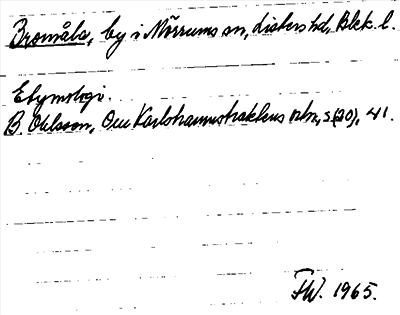 Bromåla, by i Mörrums sn, Listers hd, Blek. l.
Etymologi.
B. Ohlsson, Om Karlshamnstraktens ortn., s. (30), 41.
FW. 1965.